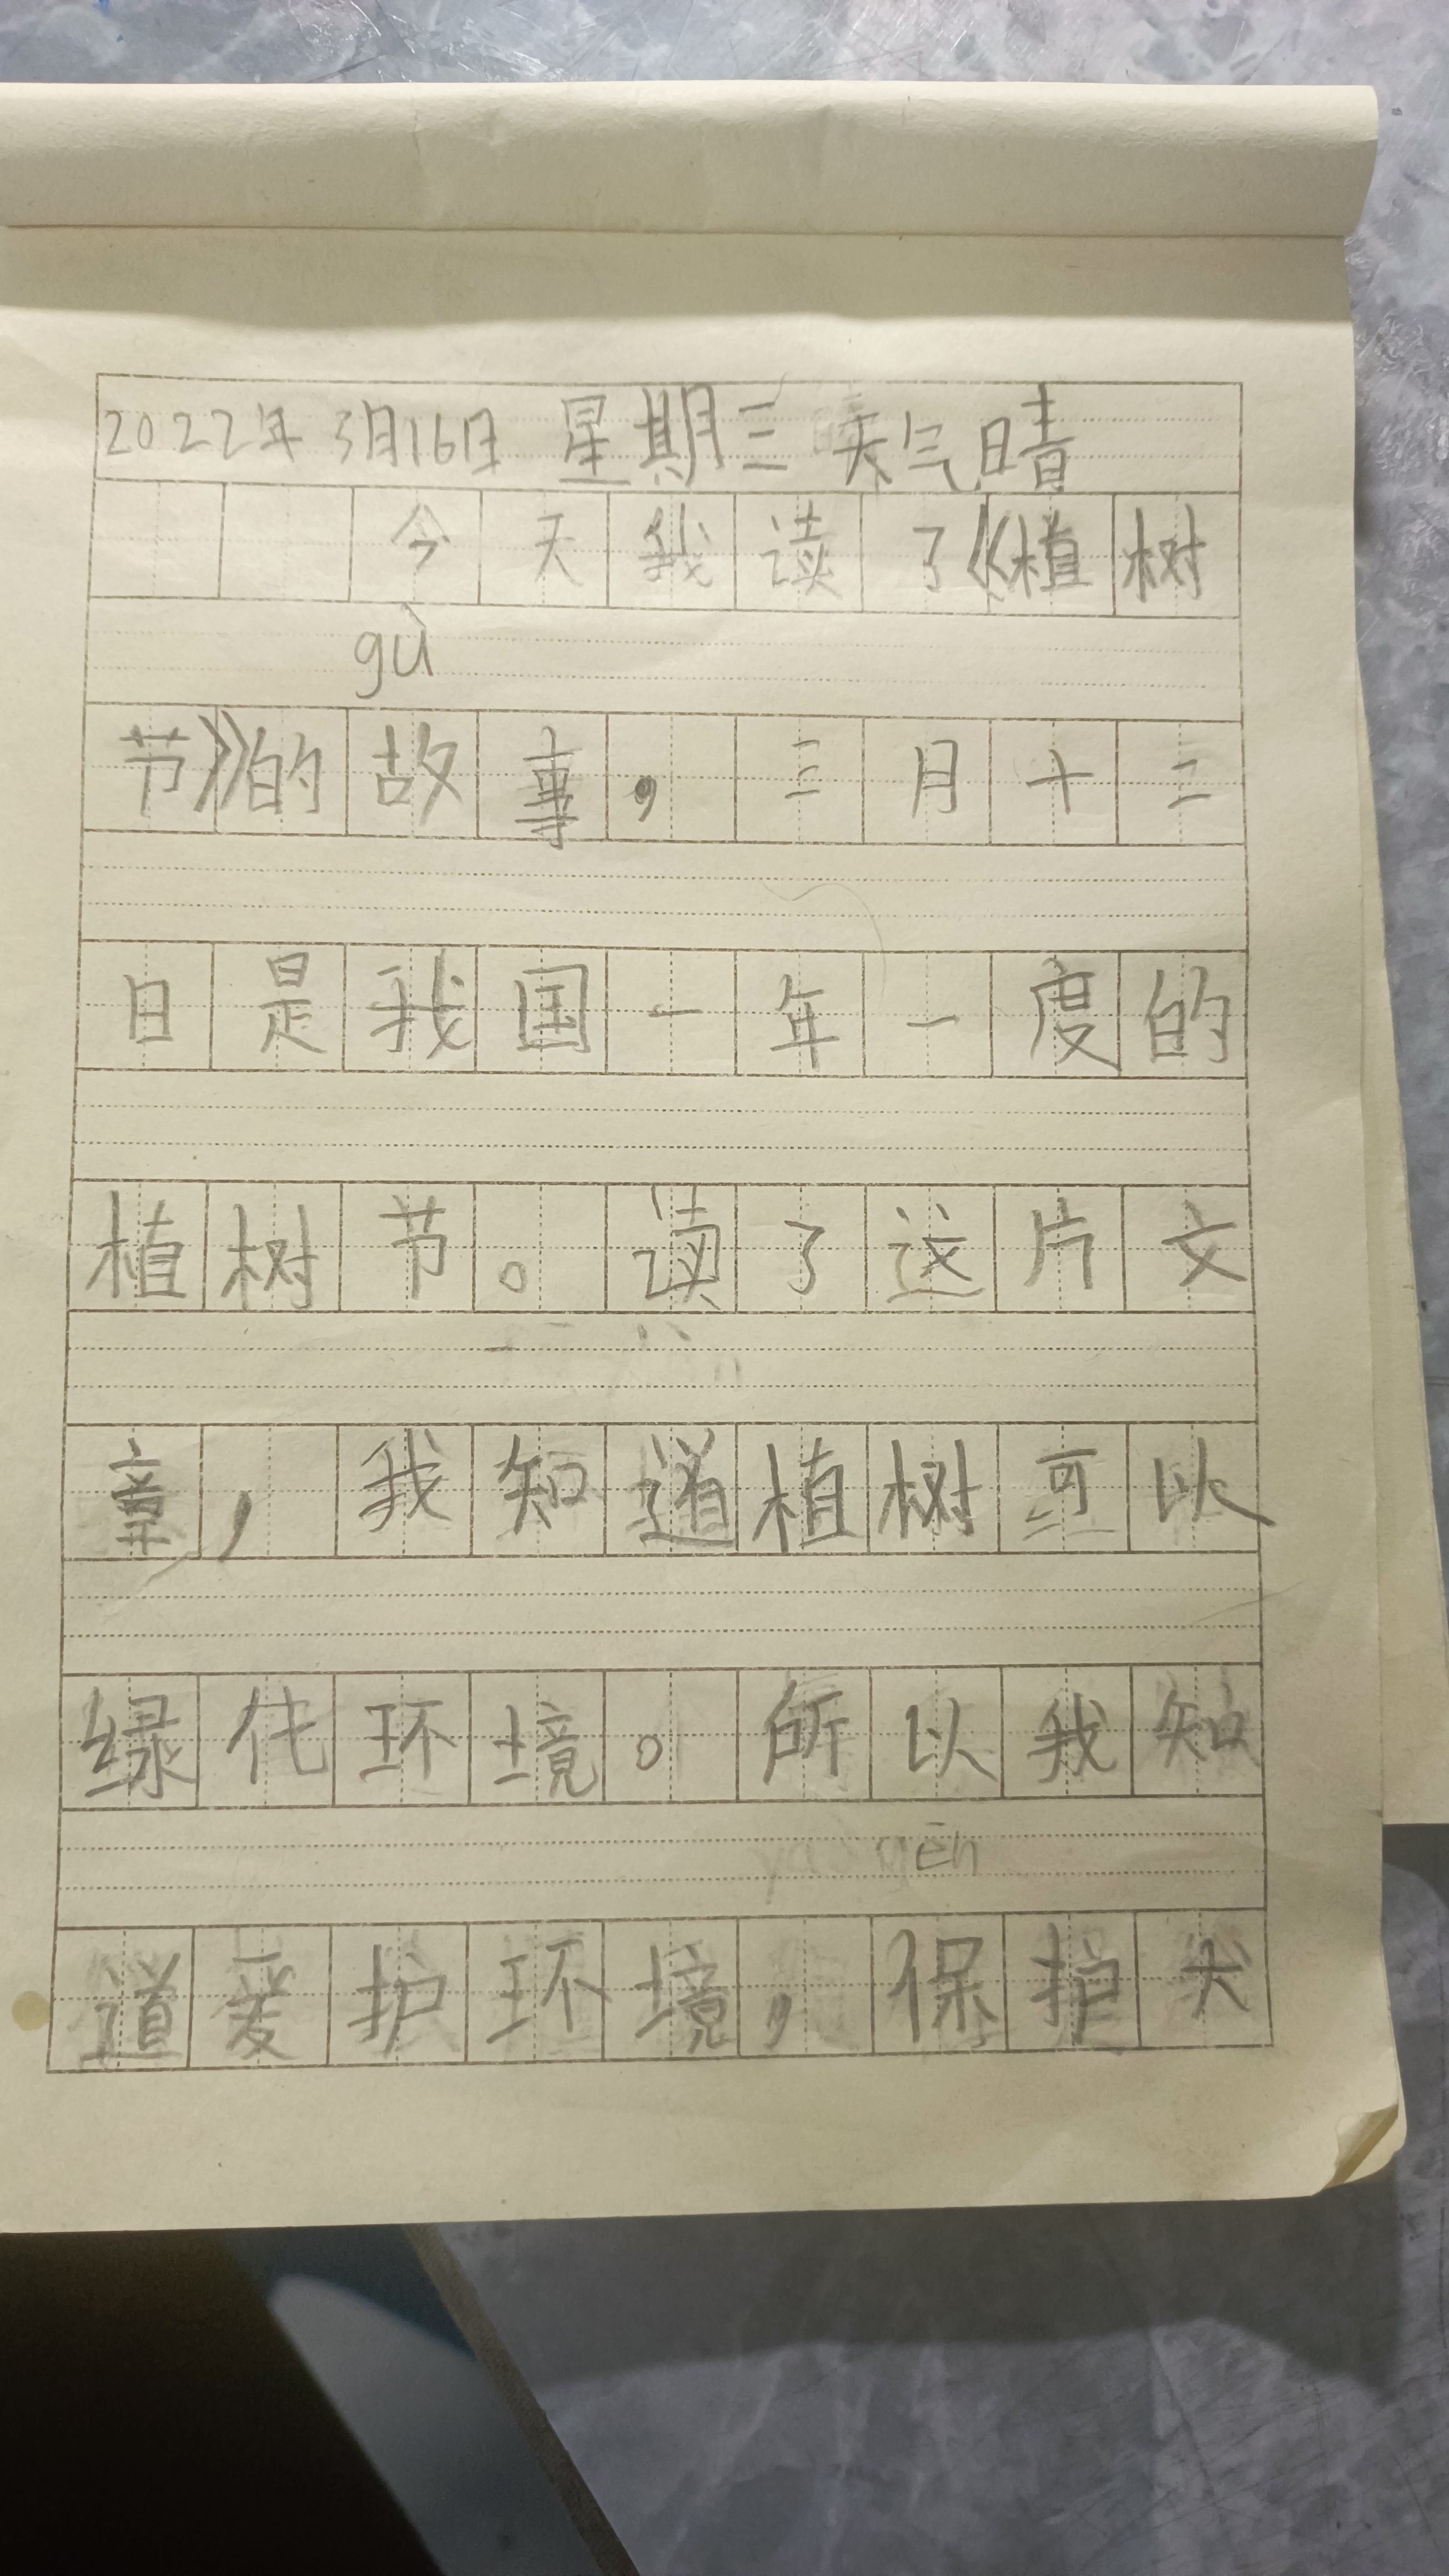 2022年 3月16日 星期三 天气晴
今天我读了《植树
gù
节》的故事，三月十二
日是我国一年一度的
植树节。读了这片文
章，我知道植树可以
绿化环境。所以我知
gēn
道爱护环境，保护大